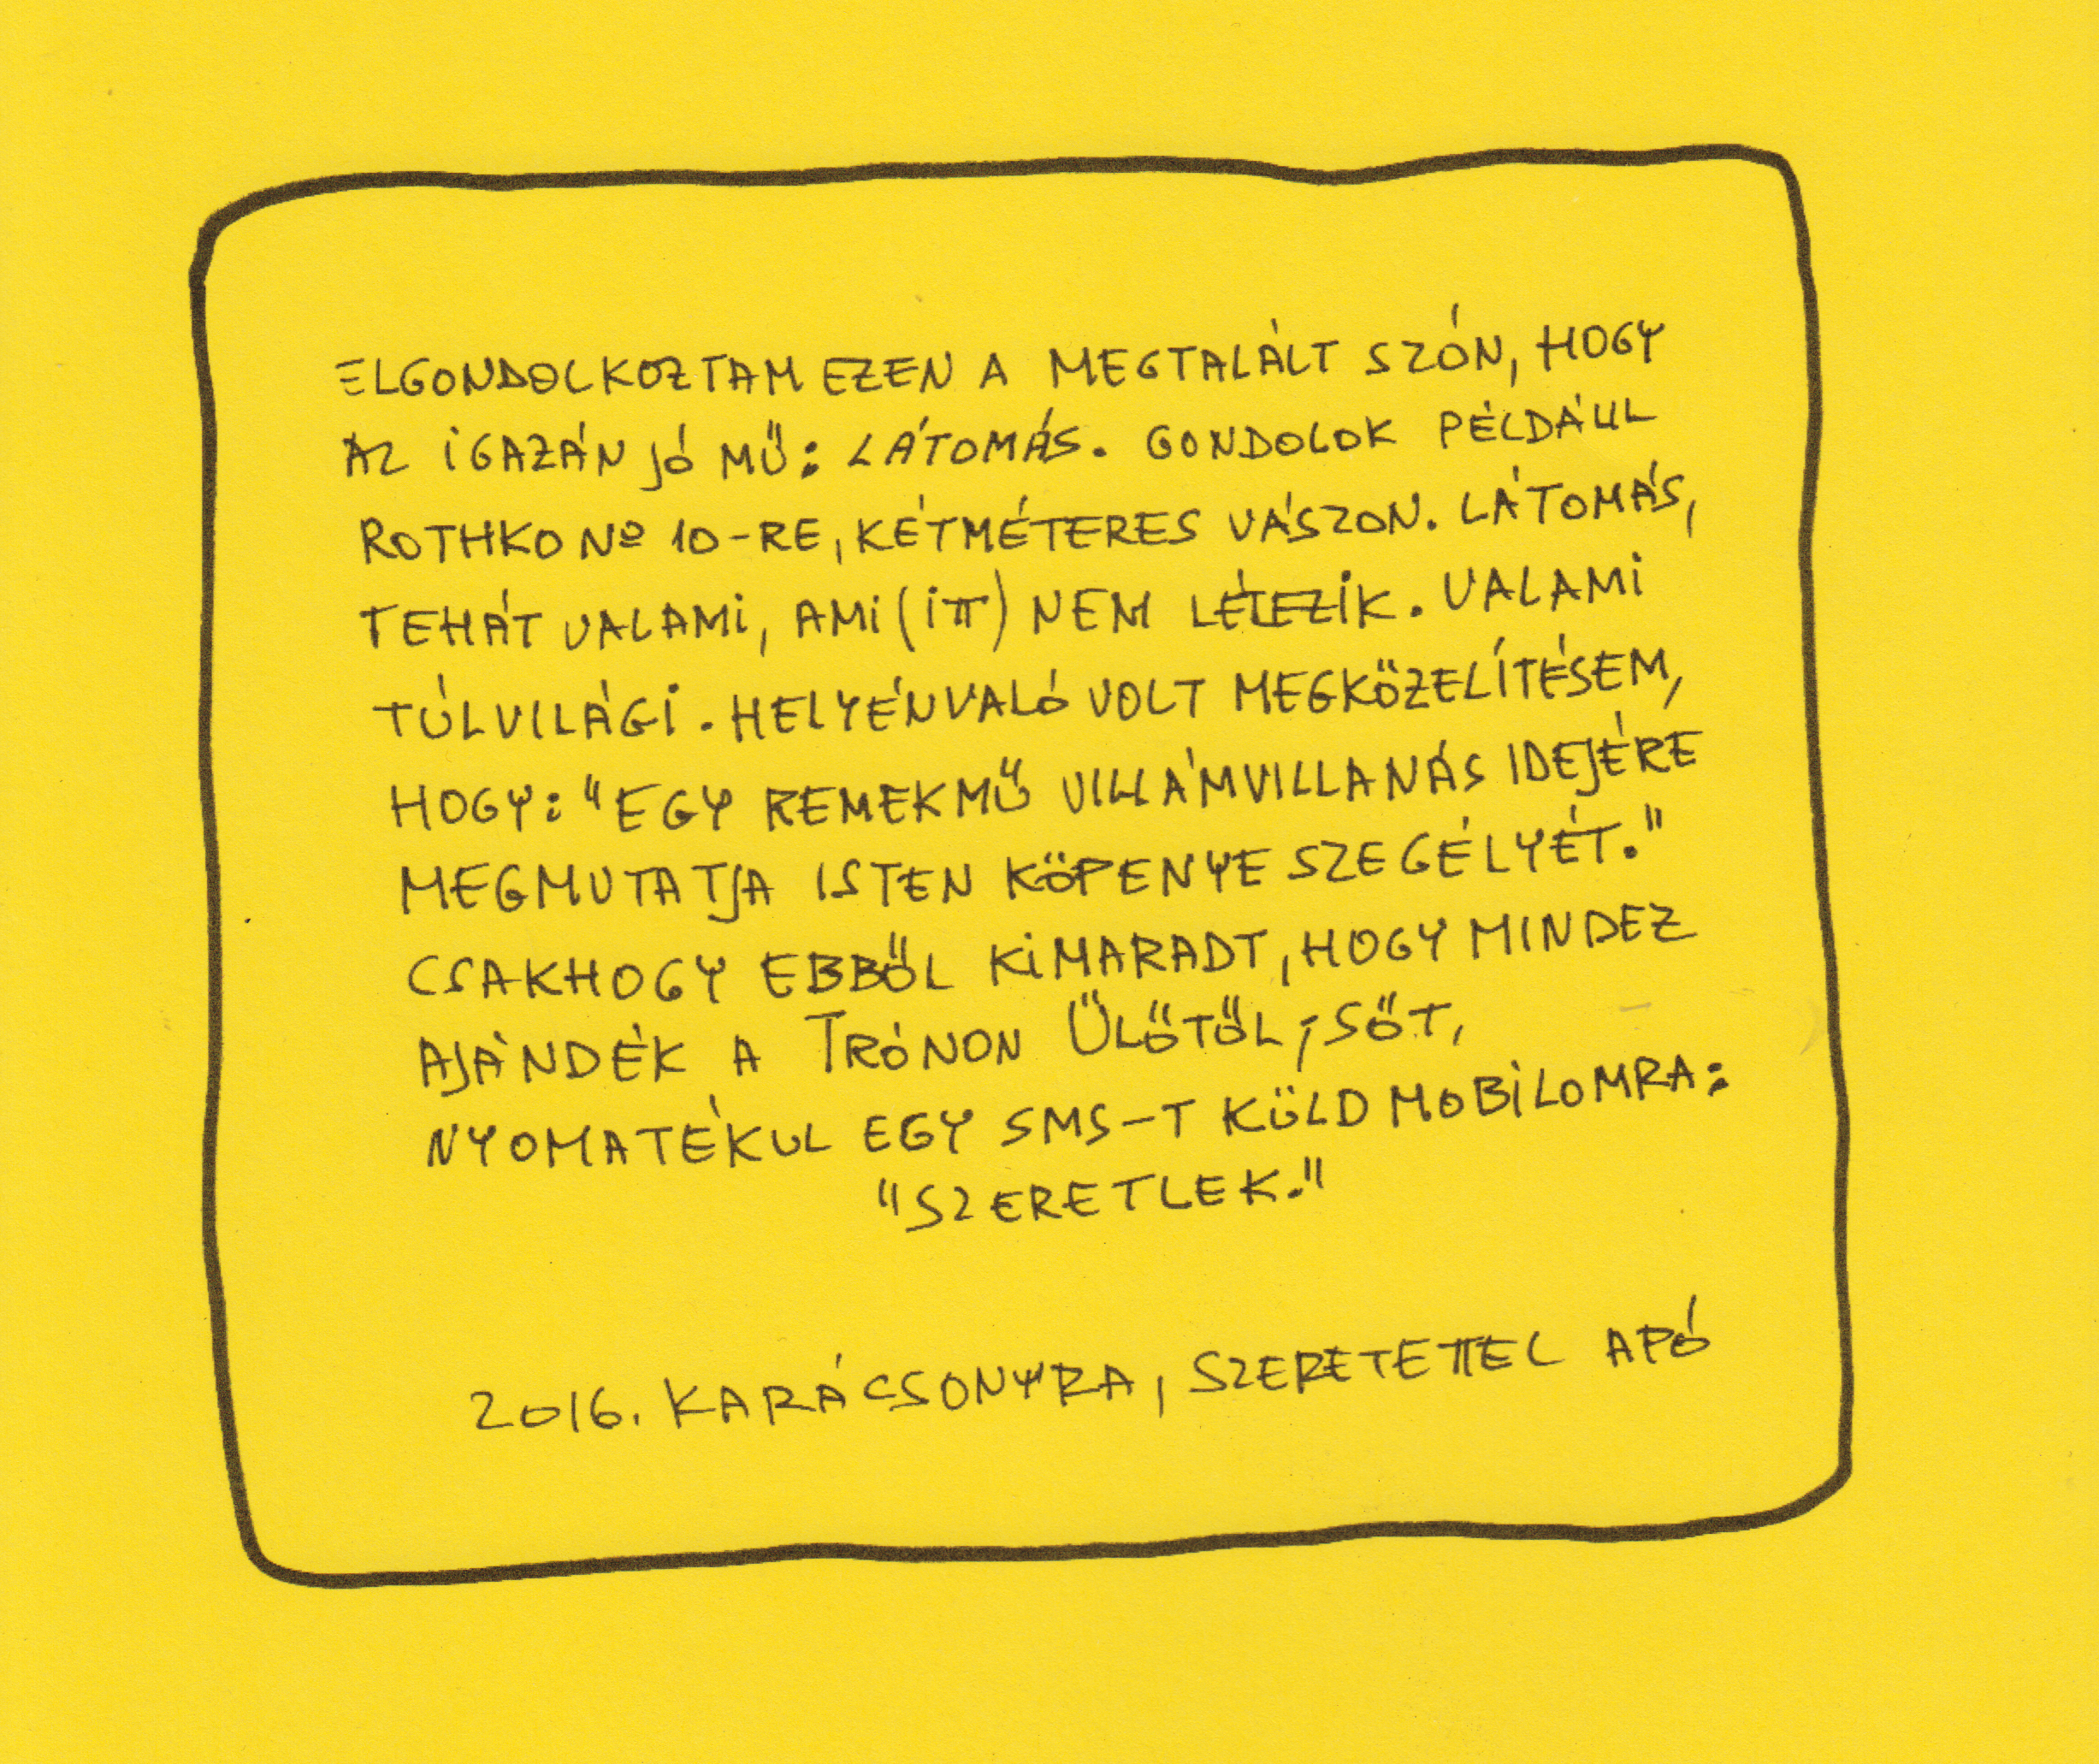 ELGONDOLKOZTAM EZEN A MEGTALÁLT SZÓN, HOGY
AZ IGAZÁN JÓ MŰ: LÁTOMÁS. GONDOLOK PÉLDÁUL
ROTHKO Nº 10-RE, KÉTMÉTERES VÁSZON. LÁTOMÁS,
TEHÁT VALAMI, AMI (ITT) NEM LÉTEZIK. VALAMI
TÚLVILÁGI. HELYÉNVALÓ VOLT MEGKÖZELÍTÉSEM,
HOGY: "EGY REMEKMŰ VILLÁMVILLANÁS IDEJÉRE
MEGMUTATJA ISTEN KÖPENYE SZEGÉLYÉT."
CSAKHOGY EBBŐL KIMARADT, HOGY MINDEZ
AJÁNDÉK A TRÓNON ÜLŐTŐL, SŐT,
NYOMATÉKUL EGY SMS-T KÜLD MOBILOMRA:
"SZERETLEK."
2016. KARÁCSONYRA, SZERETETTEL APÓ